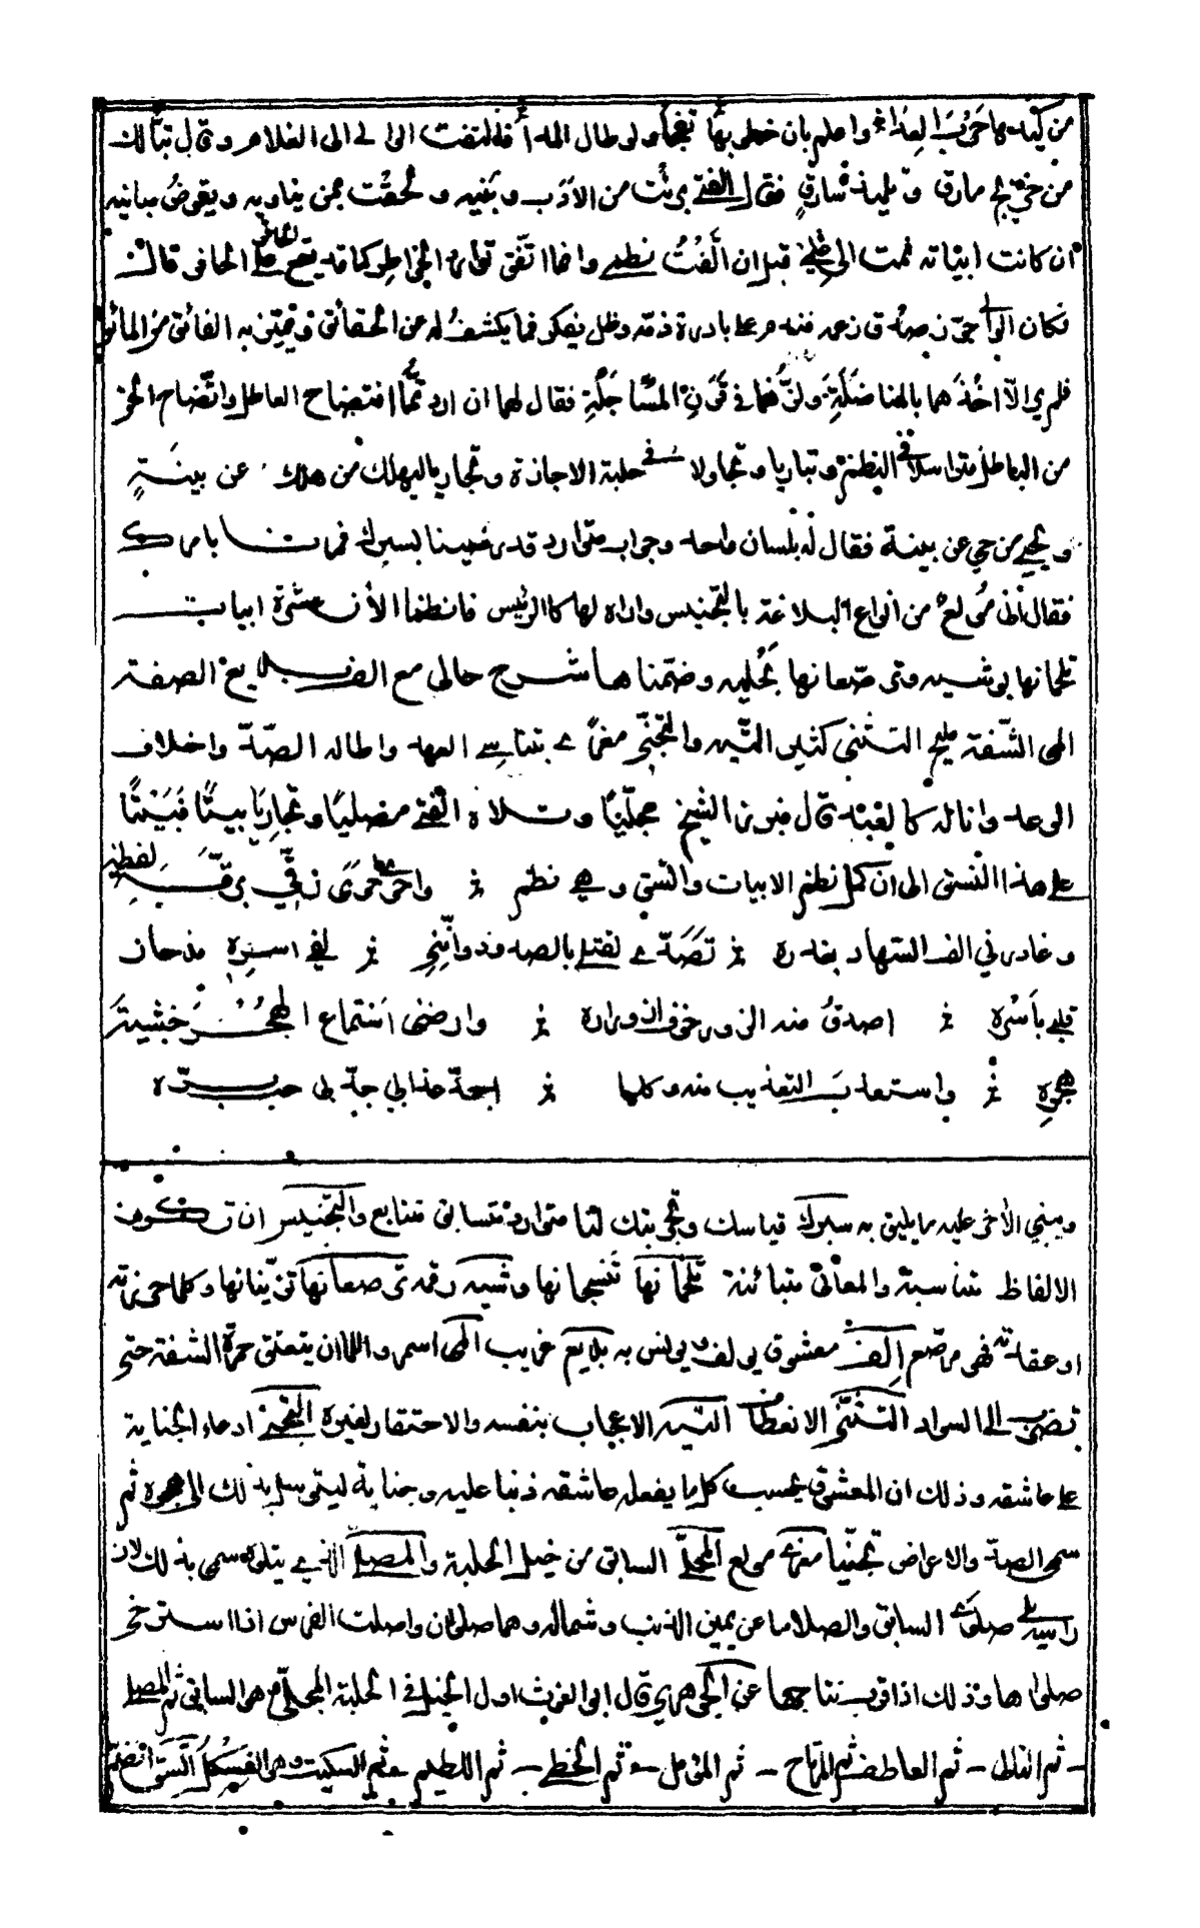 من كيد ها حرب العدا واعلم بان خطوبها تفجأ ولو طال المدا فالتفت الوالي الى الغلام وقال تبا لك
من خريج مارق وتلميذ سارق فقال الفتى برئت من الادب وبنيه ولحقت بمن يناويه ويقوض مبانيه
ان كانت ابياته نمت الى علمي قبل ان الفت نظمي وانما اتفق توارد الخواطر كما قد يقع الحافر على الحافر قال
فكان الوالي جوز صدق زعمه فندم على بادرة ذمه وظل يفكر فيما يكشف له عن الحقائق ويميز به الفائق من المائق
فلم ير الا اخذهما بالمناضلة ولزهما في قرن المساجلة فقال لهما ان اردتما افتضاح العاطل واتضاح الحق
من الباطل فتراسلا في النظم وتباريا وتجاولا في حلبة الاجازة وتجاريا ليهلك من هلك عن بينة
ويحيى من حي عن بينة فقالا له بلسان واحد وجواب متوارد قد رضينا بسبرك فمرنا بامرك
فقال اني مولع من انواع البلاغة بالتجنيس واراه لها كالرئيس فانظما الآن عشرة ابيات
تلحمانها بوشيه وترصعانها بحليه وضمناها شرح حالي مع الف بديع الصفة
المى الشفة مليح التثني كثير التيه والتجني مغرى بتناسي العهد واطالة الصد واخلاف
الوعد وانا له كالعبد قال فبرز الشيخ مجليا وتلاه الفتى مصليا وتجاريا بيتا فبيتا
على هذا النسق الى ان كمل نظم الابيات واتسق وهي نظم واحوى حوى رقي برقة لفظه
وغادرني الف السهاد بغدره تصدى لقتلي بالصدود وانني لفي اسره مذ حاز
قلبي باسره اصدق منه الزور خوف ازوراره وارضى استماع الهجر خشية
هجره واستعذب التعذيب منه وكلما اجد عذابي جد بي حب بره
وينبي الاخر عليه ما يليق به سبرك قياسك وتجربتك لنا متوارد متسابق متتابع والتجنيس ان تكون
الالفاظ متناسبة والمعاني متباينة تلحمانها تنسجانها وشيه رقمه ترصعانها تزينانها وكلما حزرته
او عقدته فهو مرصع الف معشوق يولف ويونس به بديع غريب المى اسمر واللما ان يتعلق حمرة الشفة حتى
تضرب الى السواد التثني الانعطاف التيه الاعجاب بنفسه والاحتقار لغيره التجني ادعاء الجناية
على عاشقه وذلك ان المعشوق يحسب كل ما يفعله عاشقه ذنبا عليه وجناية ليتوسل بذلك الى هجره ثم
سمى الصد والاعراض تجنيا مغرى مولع المجلي السابق من خيل الحلبة والمصلي الذي يتلوه سمى بذلك لان
راسه يلي صلوى السابق والصلا ما عن يمين الذنب وشماله وهما صلوان واصلت الفرس اذا استرخى
صلواها وذلك اذا قرب نتاجها عن الجوهري قال ابو الغوث اول الخيل في الحلبة المجلي وهو السابق ثم المصلي
- ثم التالي - ثم العاطف ثم المرتاح - ثم المؤمل - ثم الحظي - ثم اللطيم - ثم السكيت وهو الفسكل اتسق انتظم